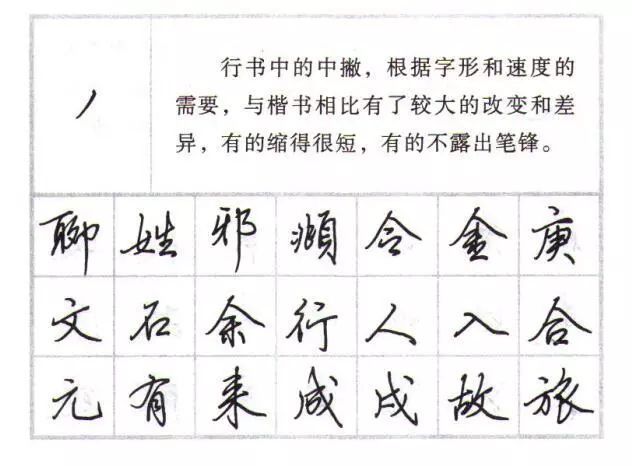 丿
行书中的中撇，根据字形和速度的
需要，与楷书相比有了较大的改变和差
异，有的缩得很短，有的不露出笔锋。
聊 姓 邪 濒 含 金 庚
文 石 余 行 人 入 合
元 有 来 成 戌 故 旅